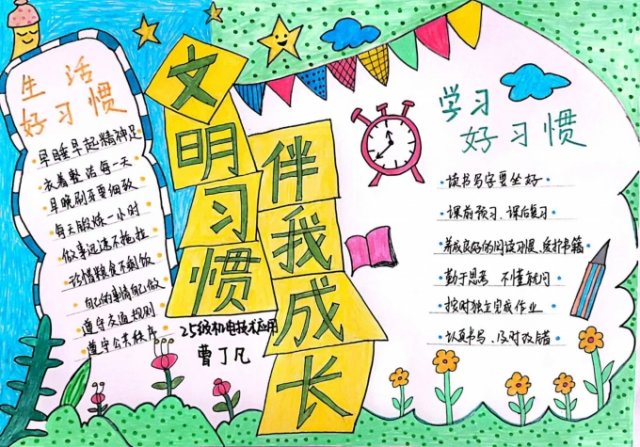 生活
好习惯
早睡早起精神足
衣着整洁每一天
早晚刷牙要细致
每天锻炼一小时
做事迅速不拖拉
珍惜粮食不剩饭
自己的事情自己做
遵守交通规则
遵守公共秩序
文明习惯
伴我成长
25级机电技术应用
曹丁凡
学习
好习惯
读书写字要坐好
课前预习、课后复习
养成良好的阅读习惯、爱护书籍
勤于思考 不懂就问
按时独立完成作业
认真书写、及时改错